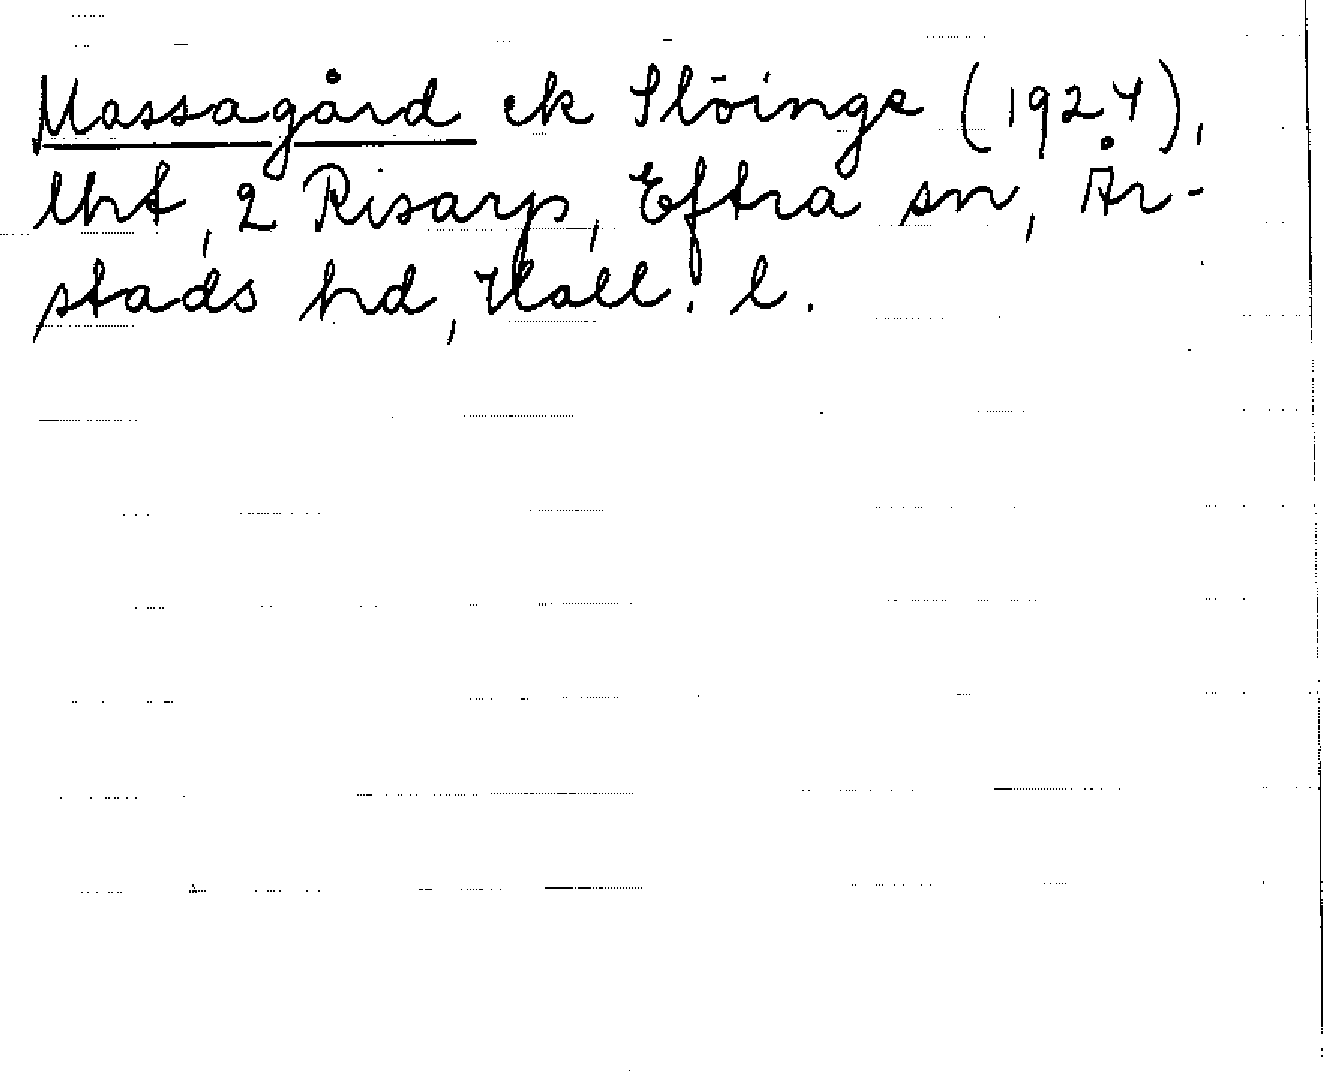 Massagård ek Slöinge (1927),
lht, 2 Risarp, Eftra sn, År-
stads hd, Hall. l.